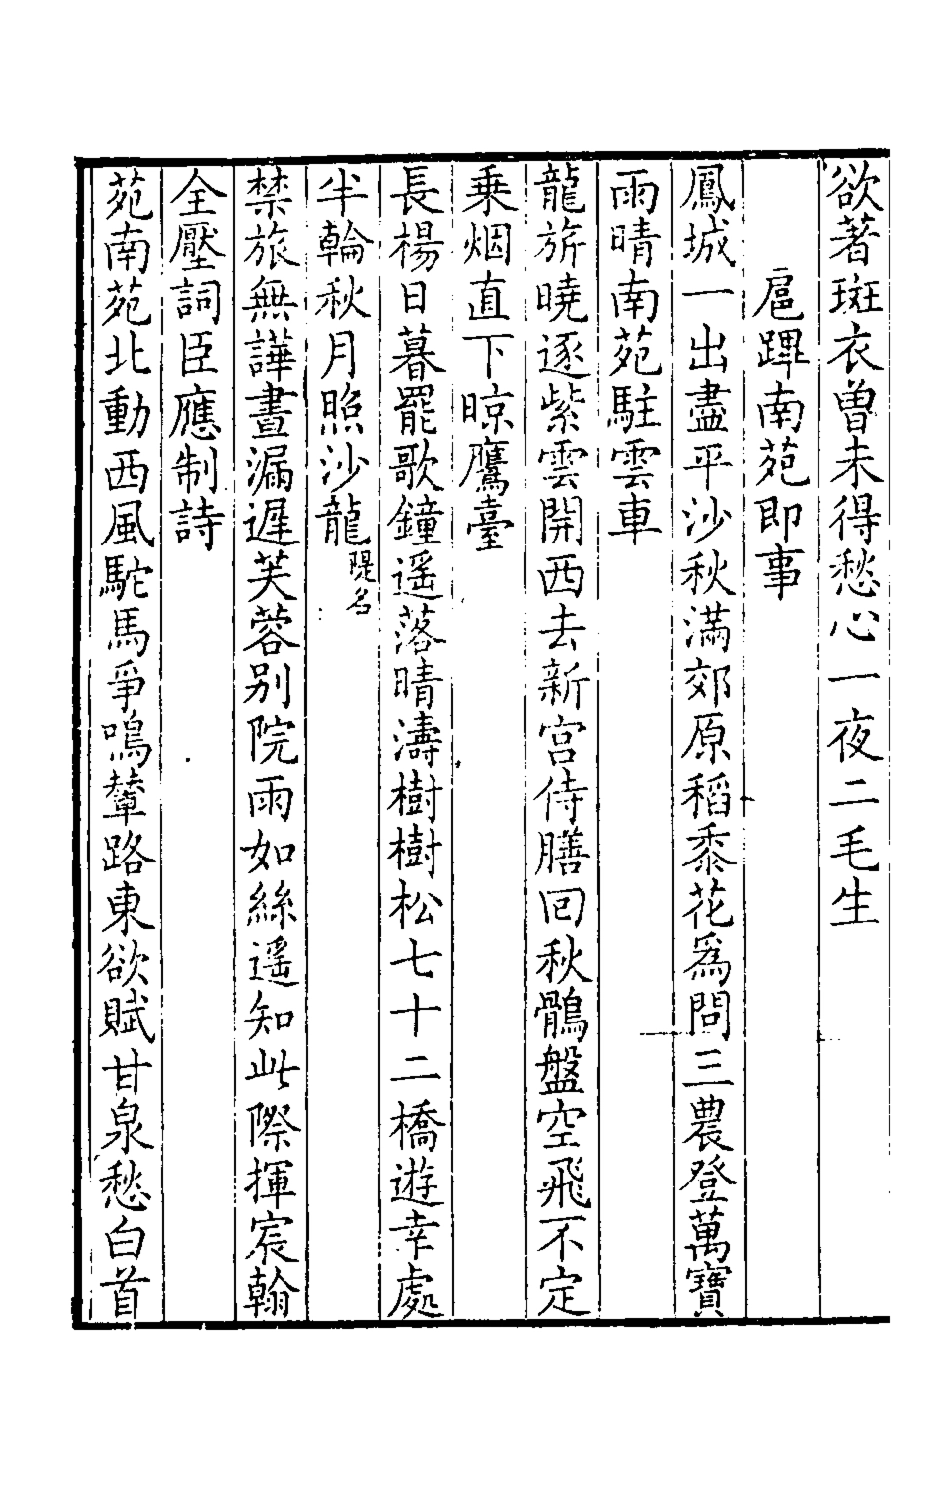 欲著斑衣曾未得愁心一夜二毛生
扈蹕南苑即事
鳳城一出盡平沙秋滿郊原稻黍花爲問三農登萬寶
雨晴南苑駐雲車
龍旂曉逐紫雲開西去新宮侍膳回秋鶻盤空飛不定
乗烟直下晾鷹臺
長楊日暮罷歌鐘遥落晴濤樹樹松七十二橋遊幸處
半輪秋月照沙龍隄名
禁旅無譁晝漏遲芙蓉别院雨如絲遥知此際揮宸翰
全壓詞臣應制詩
苑南苑北動西風駝馬爭鳴輦路東欲賦甘泉愁白首